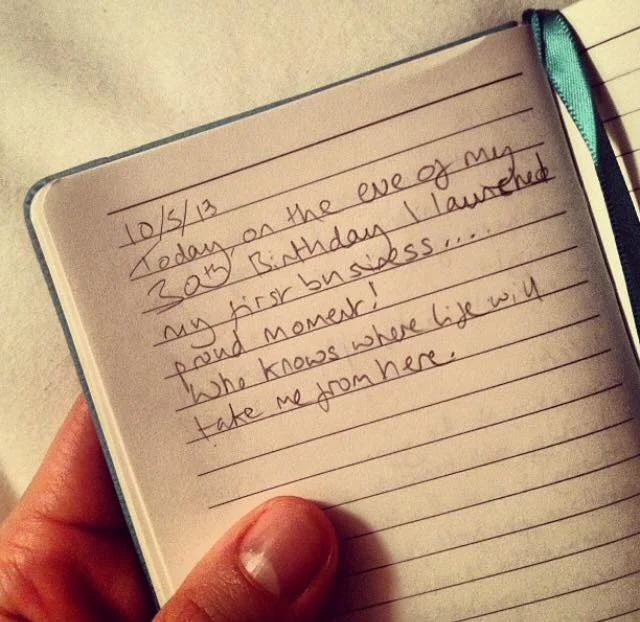 10/5/13
Today, on the eve of my
30th Birthday I launched
my first business....
proud moment!
Who knows where life will
take me from here.